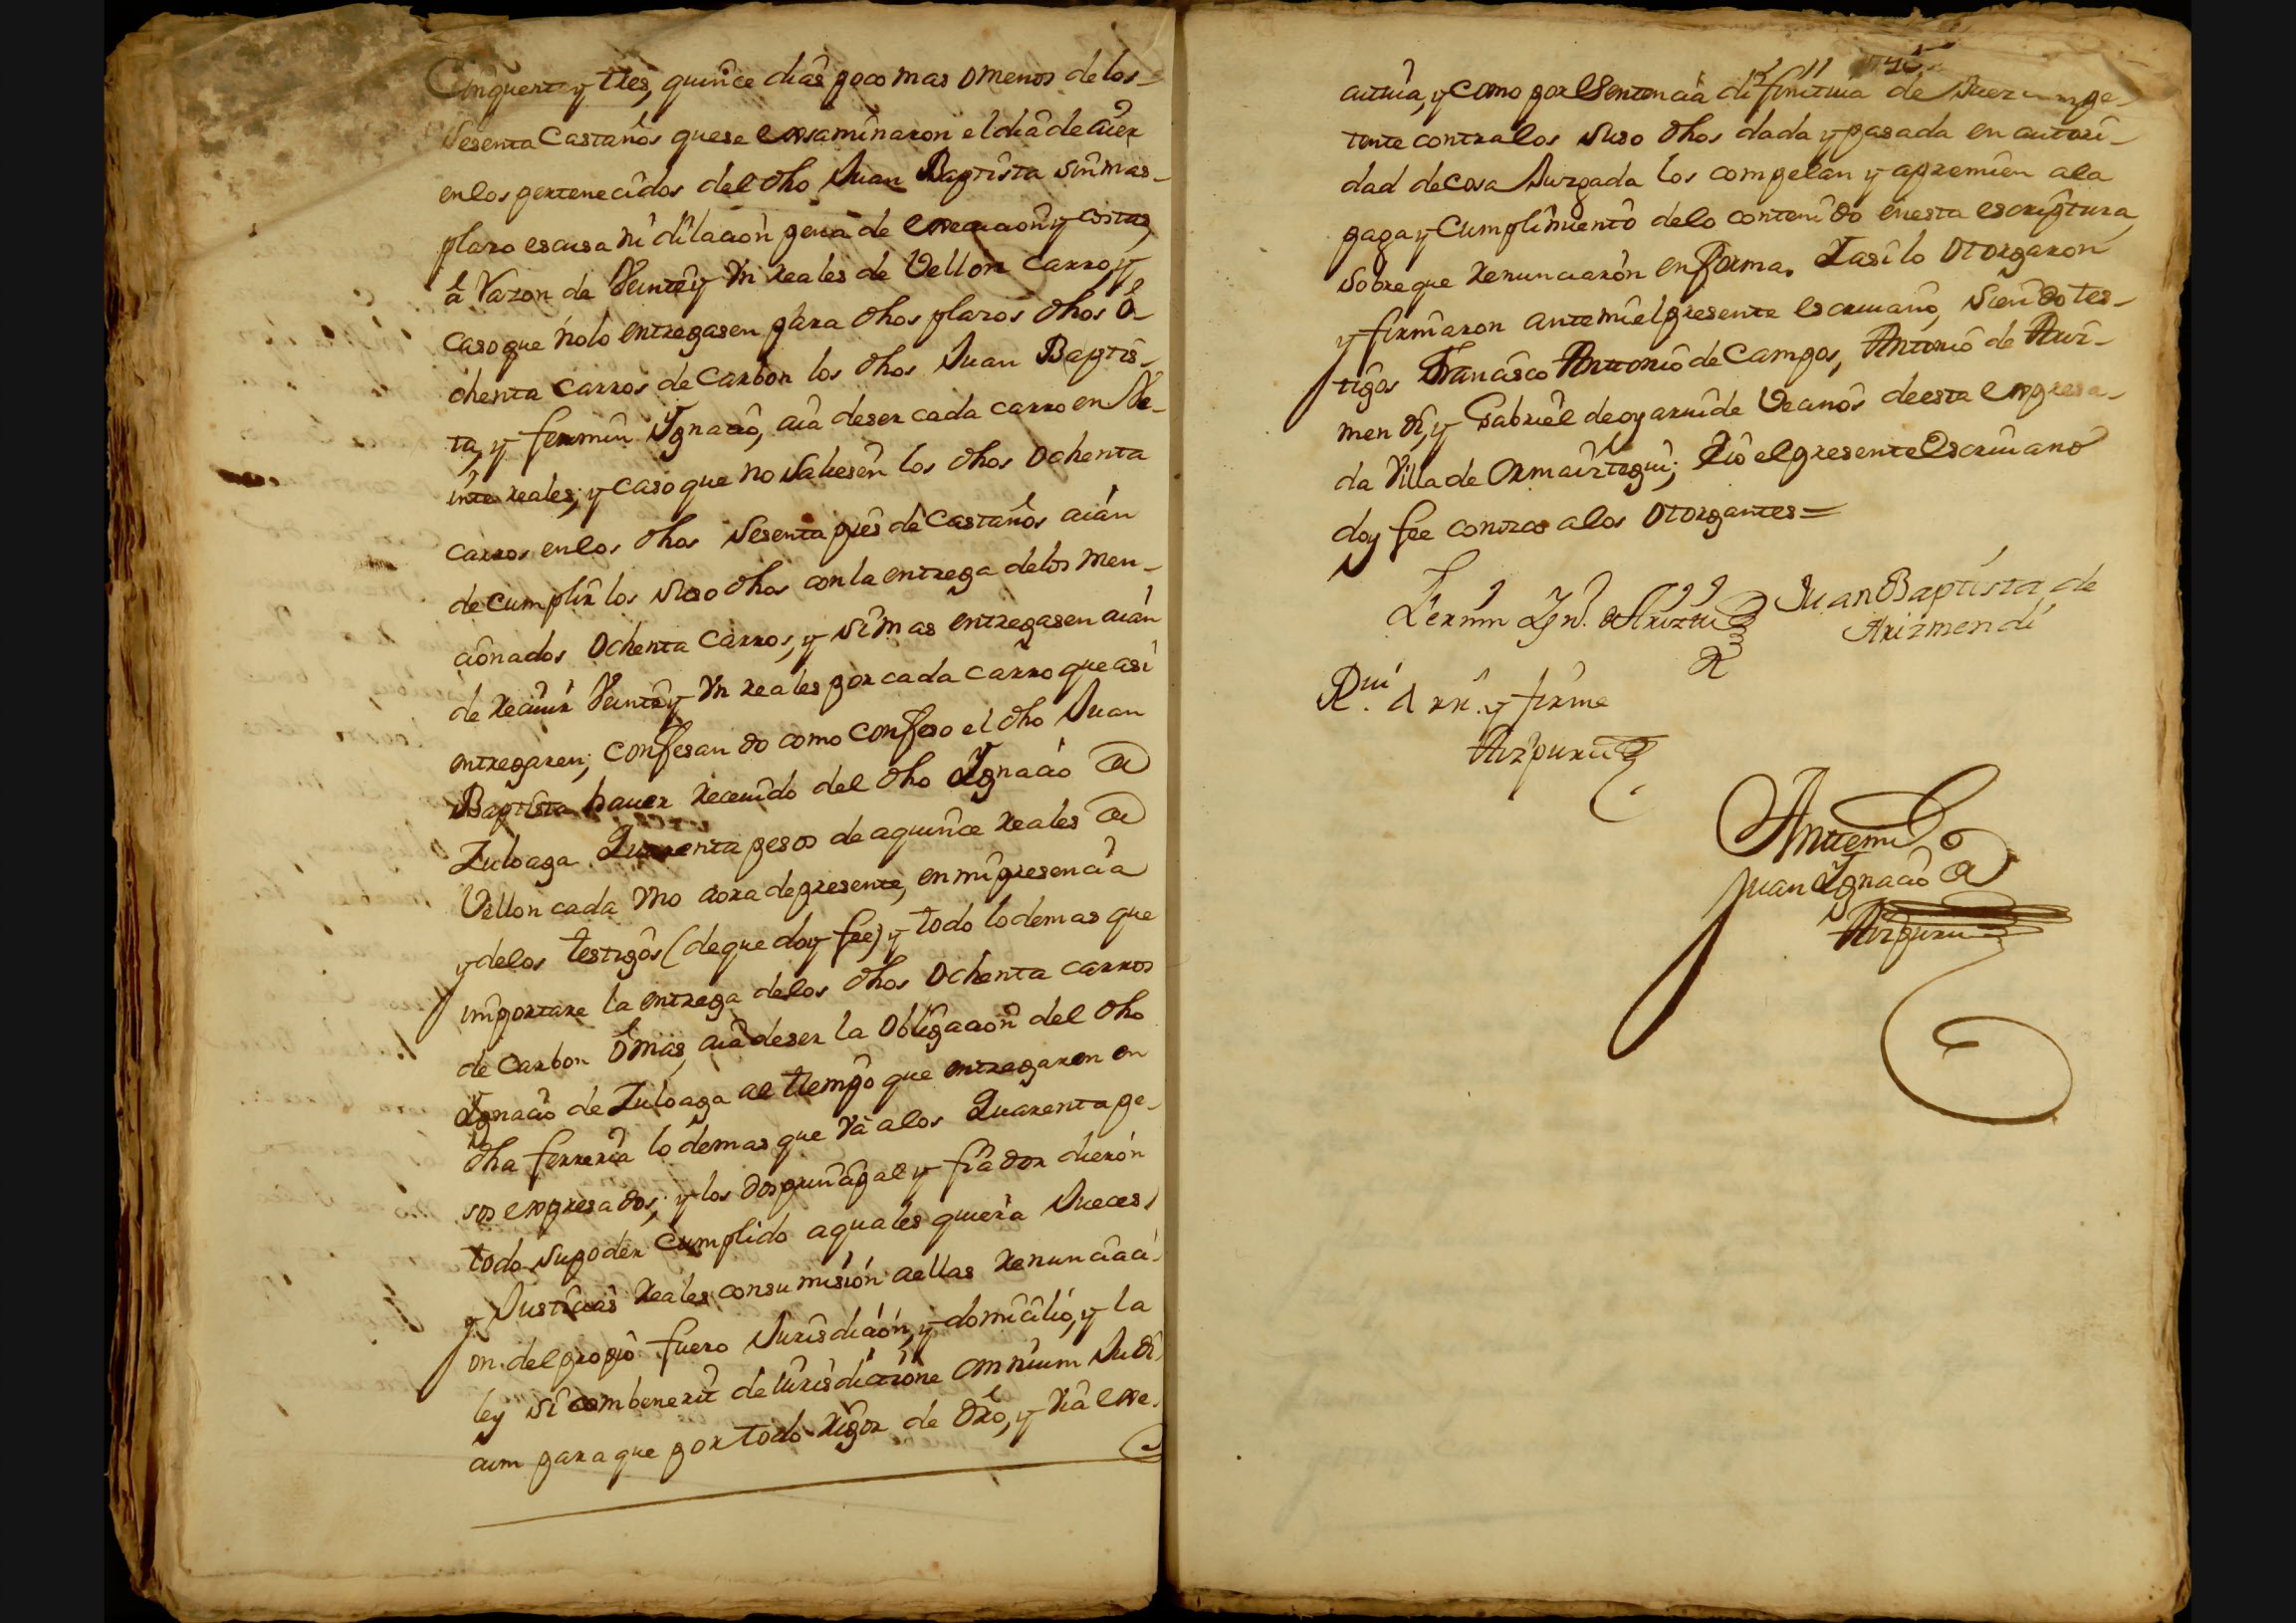 Cinquenta y tres, quince dias poco mas o menos de los
sesenta Castaños que se exsaminaron el dia de aier
en los pertenecidos del dho Juan Baptista sin mas
plazo escusa ni dilacion pena de execucion y costas,
â razon de Veinte y Vn reales de Vellon carro, y
caso que nolo entregasen para dhos plazos dhos ô-
chenta carros de carbon los dhos Juan Baptis-
ta, y fermin Ygnacio, aia de ser cada carro en Ve-
inte reales; y caso que no saliesen los dhos ochenta
carros en los dhos sesenta pies de Castaños aian
de cumplir los suso dhos con la entrega delos men-
cionados ochenta carros, y si mas entregasen aian
de reciuir Veinte y Vn reales por cada carro que asi
entregaren; confesando como confeso el dho Juan
Baptista hauer receuido del dho Ygnacio de
Zuloaga Quarenta pesos de a quince reales de
Vellon cada Vno aora de presente, en mi presencia
y delos testigos (de que doy fee) y todo lo demas que
importare la entrega delos dhos ochenta carros
de carbon ô mas, aia de ser la obligacion del dho
Ygnacio de Zuloaga al tiempo que entregaren en
dha ferreria lo demas que Vâ a los Quarenta pe-
sos expresados; y los dos prinâpal y fiador dieron
todo su poder cumplido a quales quiera Jueces
y Justicias reales con sumision a ellas renunciaci-
on del propio fuero Jurisdicion, y domicilio, y la
ley si combenerit de iurisdictione omnium Judi-
cum para que por todo rigor de dro, y via exe-
11
cutiua, y como por Sentencia difinitiua de Juez compe-
tente contra los suso dhos dada y pasada en autori-
dad de cosa Juzgada los compelan y apremien ala
paga y cumplimiento delo contenido en esta escriptura,
sobre que renunciaron en forma. Y asi lo otorgaron
y firmaron ante mi el presente escriuano, siendo tes-
tigos Francisco Antonio de Campos, Antonio de Ariz-
mendi, y Gabriel de oyaruide Vecinos de esta expresa-
da Villa de Ormaiztegui; Yo el presente Escriuano
doy fee conozco a los otorgantes=
Fermin Ign. de Ariztti Juan Baptista de
Arizmendi
y firme
Aizpuru
Antte mi
Juan Ygnacio de
Aizpuru